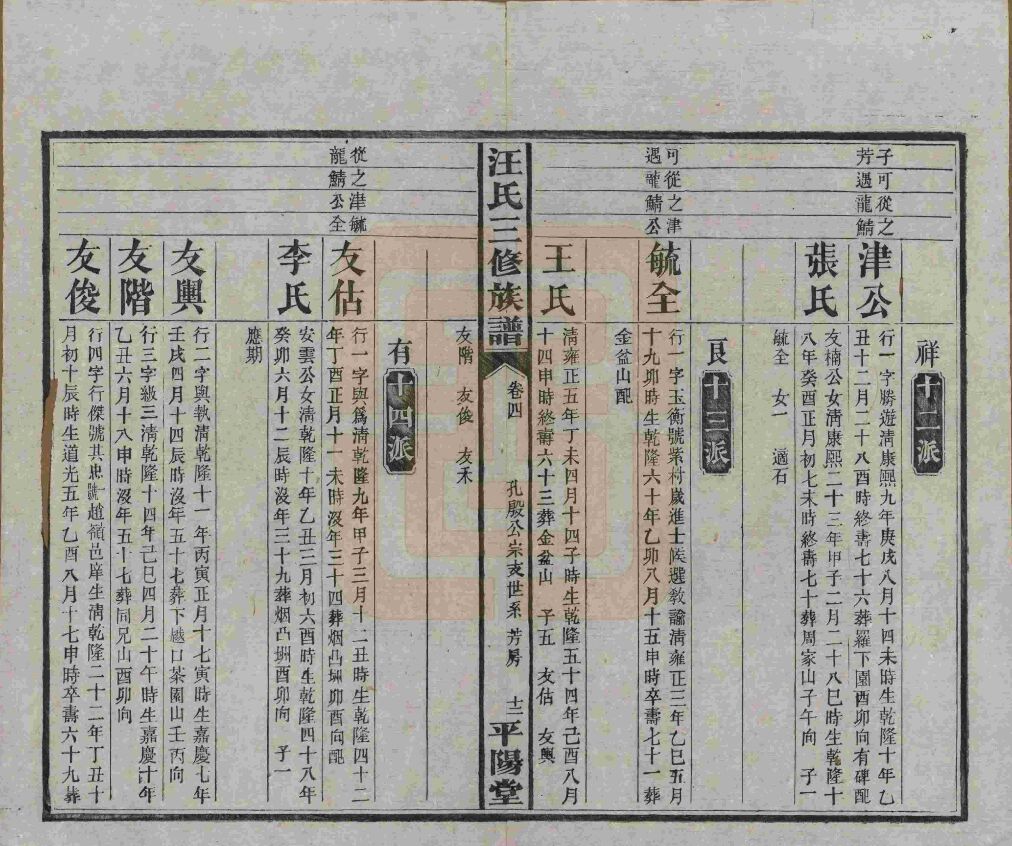 子可從之
芳遇龍鯖
祥十二派
津公
行一字勝遊清康熙九年庚戌八月十四未時生乾隆十年乙
丑十二月二十八酉時終壽七十六葬羅下園酉卯向有碑配
張氏
友楠公女清康熙二十三年甲子二月二十八巳時生乾隆十
八年癸酉正月初七未時終壽七十葬周家山子午向 子一
毓全 女一 適石
可從之津
遇龍鯖公
良十三派
毓全
行一字玉衡號紫村歲進士候選教諭清雍正三年乙巳五月
十九卯時生乾隆六十年乙卯八月十五申時卒壽七十一葬
金盆山配
王氏
清雍正五年丁未四月十四子時生乾隆五十四年己酉八月
十四申時終壽六十三葬金盆山 子五 友估 友興
汪氏三修族譜
卷四 孔殷公崇支世系 芳房 十二
平陽堂
友階 友俊 友禾
從之津毓
龍鯖公全
有十四派
友估
行一字與為清乾隆九年甲子三月十二丑時生乾隆四十二
年丁酉正月十一未時沒年三十四葬烟凸垇卯酉向配
李氏
安雲公女清乾隆十年乙丑三月初六酉時生乾隆四十八年
癸卯六月十二辰時沒年三十九葬烟凸垇酉卯向 子一
應期
友興
行二字與執清乾隆十一年丙寅正月十七寅時生嘉慶七年
壬戌四月十四辰時沒年五十七葬下樾口茶園山壬丙向
友階
行三字級三清乾隆十四年己巳四月二十午時生嘉慶十年
乙丑六月十八申時沒年五十七葬同兄山酉卯向
友俊
行四字行傑號其忠號趙嶺邑庠生清乾隆二十二年丁丑十
月初十辰時生道光五年乙酉八月十七申時卒壽六十九葬